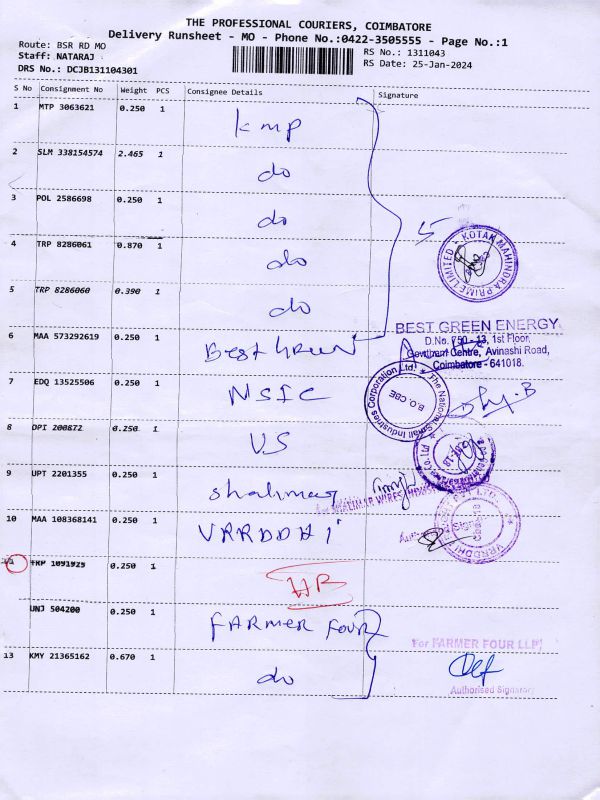 THE PROFESSIONAL COURIERS, COIMBATORE
Delivery Runsheet - MO - Phone No.:0422-3505555 - Page No.:1
Route: BSR RD MO
Staff: NATARAJ
DRS No.: DCJB131104301
RS No.: 1311043
RS Date: 25-Jan-2024
S No Consignment No Weight PCS Consignee Details Signature
1 MTP 3063621 0.250 1 kmp
2 SLM 338154574 2.465 1 do
3 POL 2586698 0.250 1 do
4 TRP 8286061 0.870 1 do
5 TRP 8286060 0.390 1 do
5
KOTAK MAHINDRA PRIME LIMITED
6 MAA 573292619 0.250 1 Best Green
BEST GREEN ENERGY
D.No. 750 - 13, 1st Floor,
Govthant Centre, Avinashi Road,
Coimbatore - 641018.
7 EDQ 13525506 0.250 1 NSIC
The National Small Industries Corporation Ltd.
B.O. CBE
8 DPI 200872 0.250 1 VS
9 UPT 2201355 0.250 1 shalimar
SHALIMAR WIRES
10 MAA 108368141 0.250 1 VRRDDHI
VRRDDHI PVT LTD
11 TRP 1091925 0.250 1 HB
UNJ 504200 0.250 1 FARMER FOUR
13 KMY 21365162 0.670 1 do
For FARMER FOUR LLP
Authorised Signatory